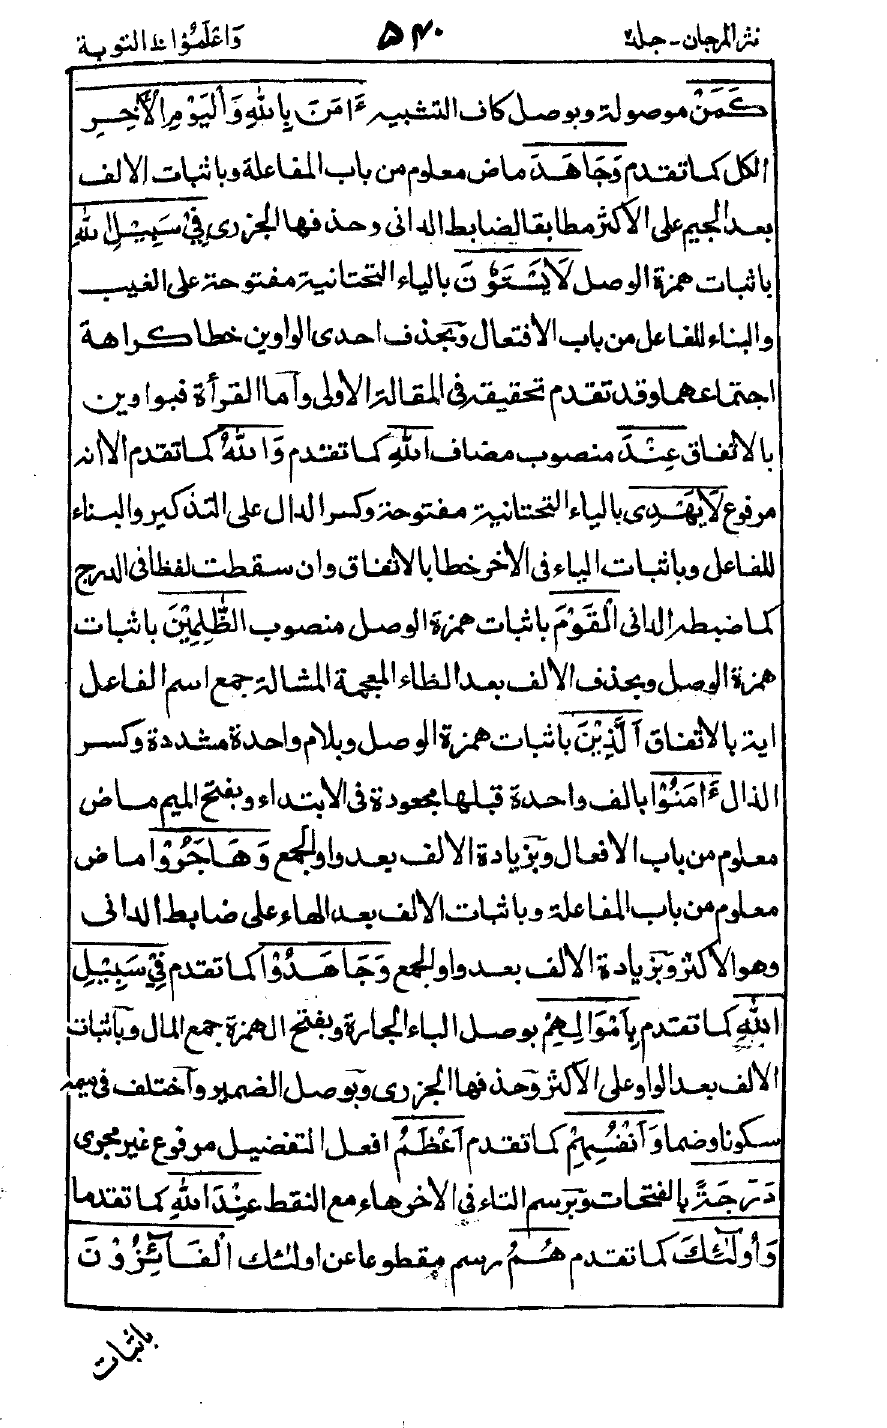 نثر المرجان - جلد٢ ٥٤٠ وَاعْلَمُوْا ١٠ التوبة
كَمَنْ موصولة وبوصل كاف التشبيه ءَامَنَ بِاللّٰهِ وَالْيَوْمِ الْأٰخِرِ
الكل كما تقدم وَجَاهَدَ ماض معلوم من باب المفاعلة وباثبات الالف
بعد الجيم على الأكثر مطابقا لضابط الدانى وحذفها الجزرى فِيْ سَبِيْلِ اللّٰهِ
باثبات همزة الوصل لَا يَسْتَوٗنَ بالياء التحتانية مفتوحة على الغيب
والبناء للفاعل من باب الافتعال وبحذف احدى الواوين خطا كراهة
اجتماعهما وقد تقدم تحقيقه فى المقالة الاولى وآما القرأة فبواوين
بالاتفاق عِنْدَ منصوب مضاف اللّٰهِ كما تقدم وَاللّٰهُ كما تقدم الا انه
مرفوع لَا يَهْدِى بالياء التحتانية مفتوحة وكسر الدال على التذكير والبناء
للفاعل وباثبات الياء فى الأخر خطا بالاتفاق وان سقطت لفظا فى الدرج
كما ضبطه الدانى الْقَوْمَ باثبات همزة الوصل منصوب الظّٰلِمِيْنَ باثبات
همزة الوصل وبحذف الالف بعد الظاء المعجمة المشالة جمع اسم الفاعل
اية بالاتفاق اَلَّذِيْنَ باثبات همزة الوصل وبلام واحدة مشددة وكسر
الذال ءَامَنُوْا بالف واحدة قبلها مجعودة فى الابتداء وبفتح الميم ماض
معلوم من باب الافعال وبزيادة الالف بعد واو الجمع وَهَاجَرُوْا ماض
معلوم من باب المفاعلة وباثبات الالف بعد الهاء على ضابط الدانى
وهو الأكثر وبزيادة الالف بعد واو الجمع وَجَاهَدُوْا كما تقدم فِيْ سَبِيْلِ
اللّٰهِ كما تقدم بِاَمْوَالِهِمْ بوصل الباء الجارة وبفتح الهمزة جمع المال وباثبات
الالف بعد الواو على الأكثر وحذفها الجزرى وبوصل الضمير وآختلف فى ميمه
سكونا وضما وَاَنْفُسِهِمْ كما تقدم اَعْظَمُ افعل التفضيل مرفوع غير مجرى
دَرَجَةً بالفتحات وبرسم التاء فى الأخر هاء مع النقط عِنْدَ اللّٰهِ كما تقدما
وَاُولٰٓئِكَ كما تقدم هُمُ رسم مقطوعا عن اولٰئك الْفَآئِزُوْنَ
باثبات